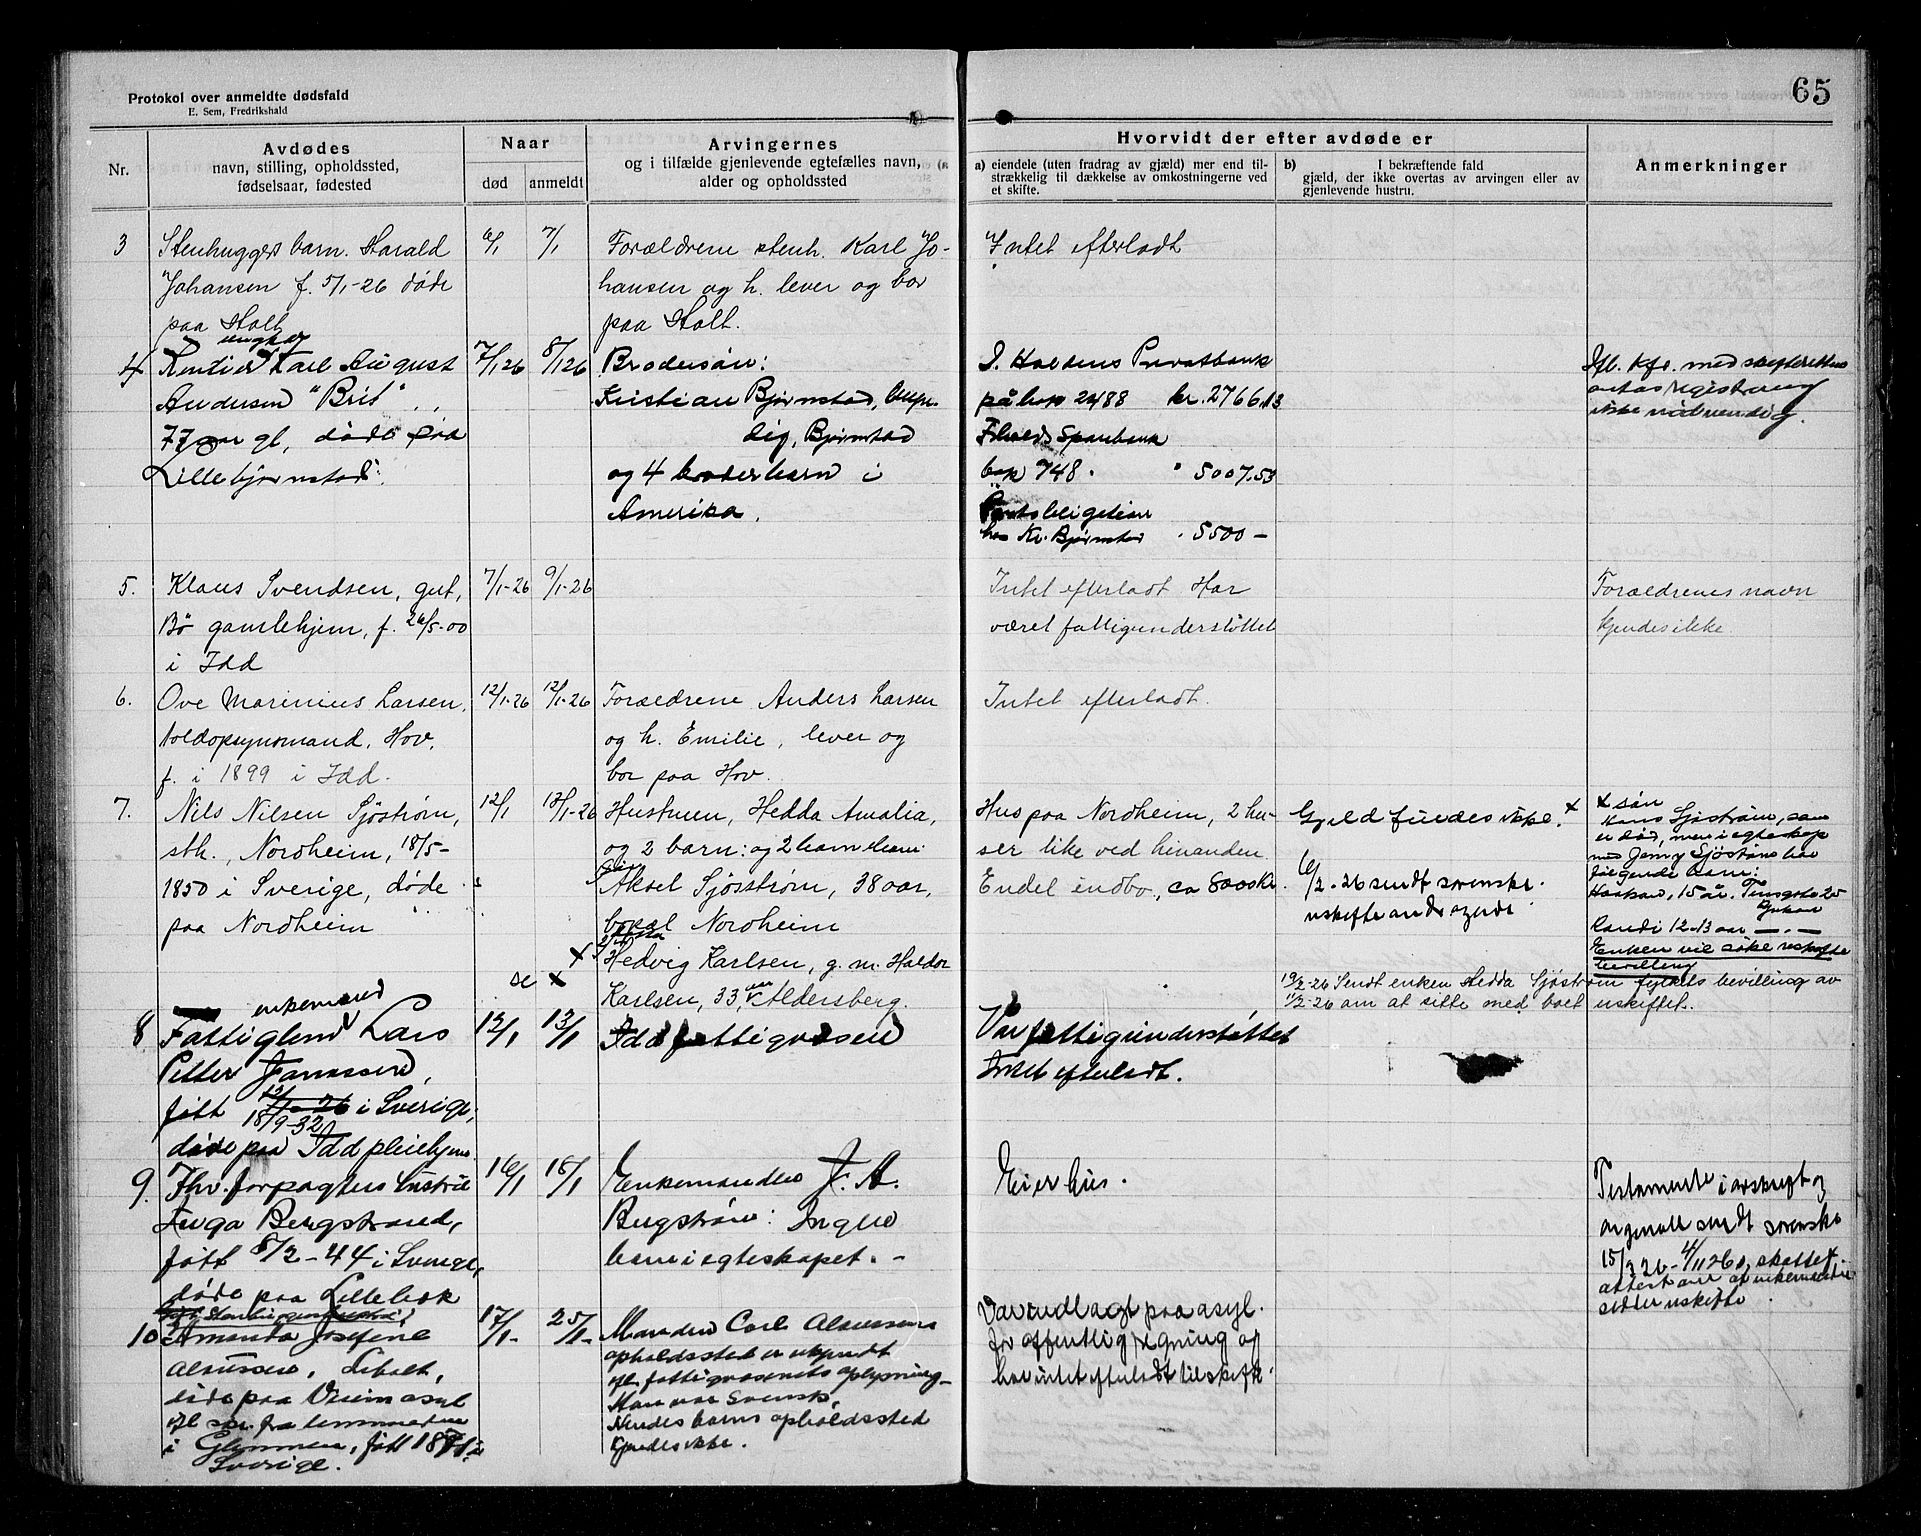 65
Protokol over anmeldte dødsfald
E. Sem, Fredrikshald
Nr.
Avdødes
navn, stilling, opholdssted,
fødselsaar, fødested
Naar
død
anmeldt
Arvingernes
og i tilfælde gjenlevende egtefælles navn,
alder og opholdssted
Hvorvidt der efter avdøde er
a) eiendele (uten fradrag av gjæld) mer end til-
strækkelig til dækkelse av omkostningerne ved
et skifte.
b) I bekræftende fald
gjæld, der ikke overtas av arvingen eller av
gjenlevende hustru.
Anmerkninger
3
Stenhuggers barn. Harald
Johansen f. 5/1-26 døde
paa Holt
6/1
7/1
Forældrene stenh. Karl Jo-
hansen og h. lever og bor
paa Holt.
Intet efterladt
4
ungkar
Rentier Karl August
Andersen "Brit"
77 aar gl, døde paa
Lillebjørnstad.
7/1 26
8/1 26
Brodersøn:
Kristian Bjørnstad,
Bjørnstad
og 4 broderbarn i
Amerika.
I. Haldens Privatbank
på bok 2488 kr. 2766.13
Fhalds Sparebank
bok 948. " 5007.53
Pantobligation
hos Kr. Bjørnstad " 5500 –
Ifl. kfr. med skifteretten
antas registrering
ikke nødvendig.
5.
Klaus Svendsen, gut,
Bø gamlehjem, f. 26/5-00
i Idd
7/1-26
9/1-26
Intet efterladt Har
været fattigunderstøttet
Forældrenes navn
kjendes ikke.
6.
Ove Marinius Larsen,
toldopsynsmand, Hov,
f. i 1899 i Idd.
12/1-26
12/1-26
Forældrene Anders Larsen
og h. Emilie, lever og
bor paa Hov.
Intet efterladt.
7.
Nils Nilsen Sjøstrøm,
sth., Nordheim, 18/5-
1850 i Sverige, døde
paa Nordheim
12/1
13/1-26
Hustruen, Hedda Amalia,
og 2 barn: og 2 barnebarn:
Aksel Sjøsstrøm, 38 aar,
bopæl Nordheim
Hedvig Karlsen, g. m. Haldor
Karlsen, 33 aar, Aldersberg.
se x
Hus paa Nordheim, 2 hu-
ser like ved hinanden.
Endel indbo, ca 800 kr.
Gjeld findes ikke. x
6/2-26 sendt sorenskr.
uskifteandragende.
19/2-26 Sendt enken Hedda Sjøstrøm fylkets bevilling av
11/2-26 om at sitte med boet uskiftet.
x søn
Hans Sjøstrøm, som
er død, men i egteskap
med Jenny Sjøstrøm har
følgende barn:
Haakon, 15 år. Tinsgate 25
Rjukan
Randi 12-13 aar — " —
Enken vil søke uskifte
bevilling
8
enkemand
Fattiglem Lars
Petter Janassen,
født 12/1-26 i Sverige,
18/9-32
døde paa Idd pleiehjem
12/1
13/1
Idd fattigvæsen
Var fattigunderstøttet
Intet efterladt.
9.
Fhv. forpagters hustru
Inga Bergstrand,
født 8/2-44 i Sverige,
døde paa Lillebæk
16/1
18/1
Enkemanden J. A.
Bergstrøm: Ingen
barn i egteskapet. -
Eier hus.
Testamente i avskrift og
original sendt sorenskr
15/3 26 - 4/11 26 s. skattet.
attest om at enkemanden
sidder uskifte.
10
Amanda Josefine
Alsussen, Liholt,
døde paa Veum asyl
ifl skr. fra lensmanden
i Glemmen, født 1871 i
Sverige.
17/1-
25/1-
Manden Carl Alsussens
opholdssted er ukjendt
ifl. fattigvæsenets oplysning –
Han var Svensk,
Nendes barns opholdssted
kjendes ikke.
Var indlagt paa asyl
for offentlig regning og
har intet efterladt til skifte.